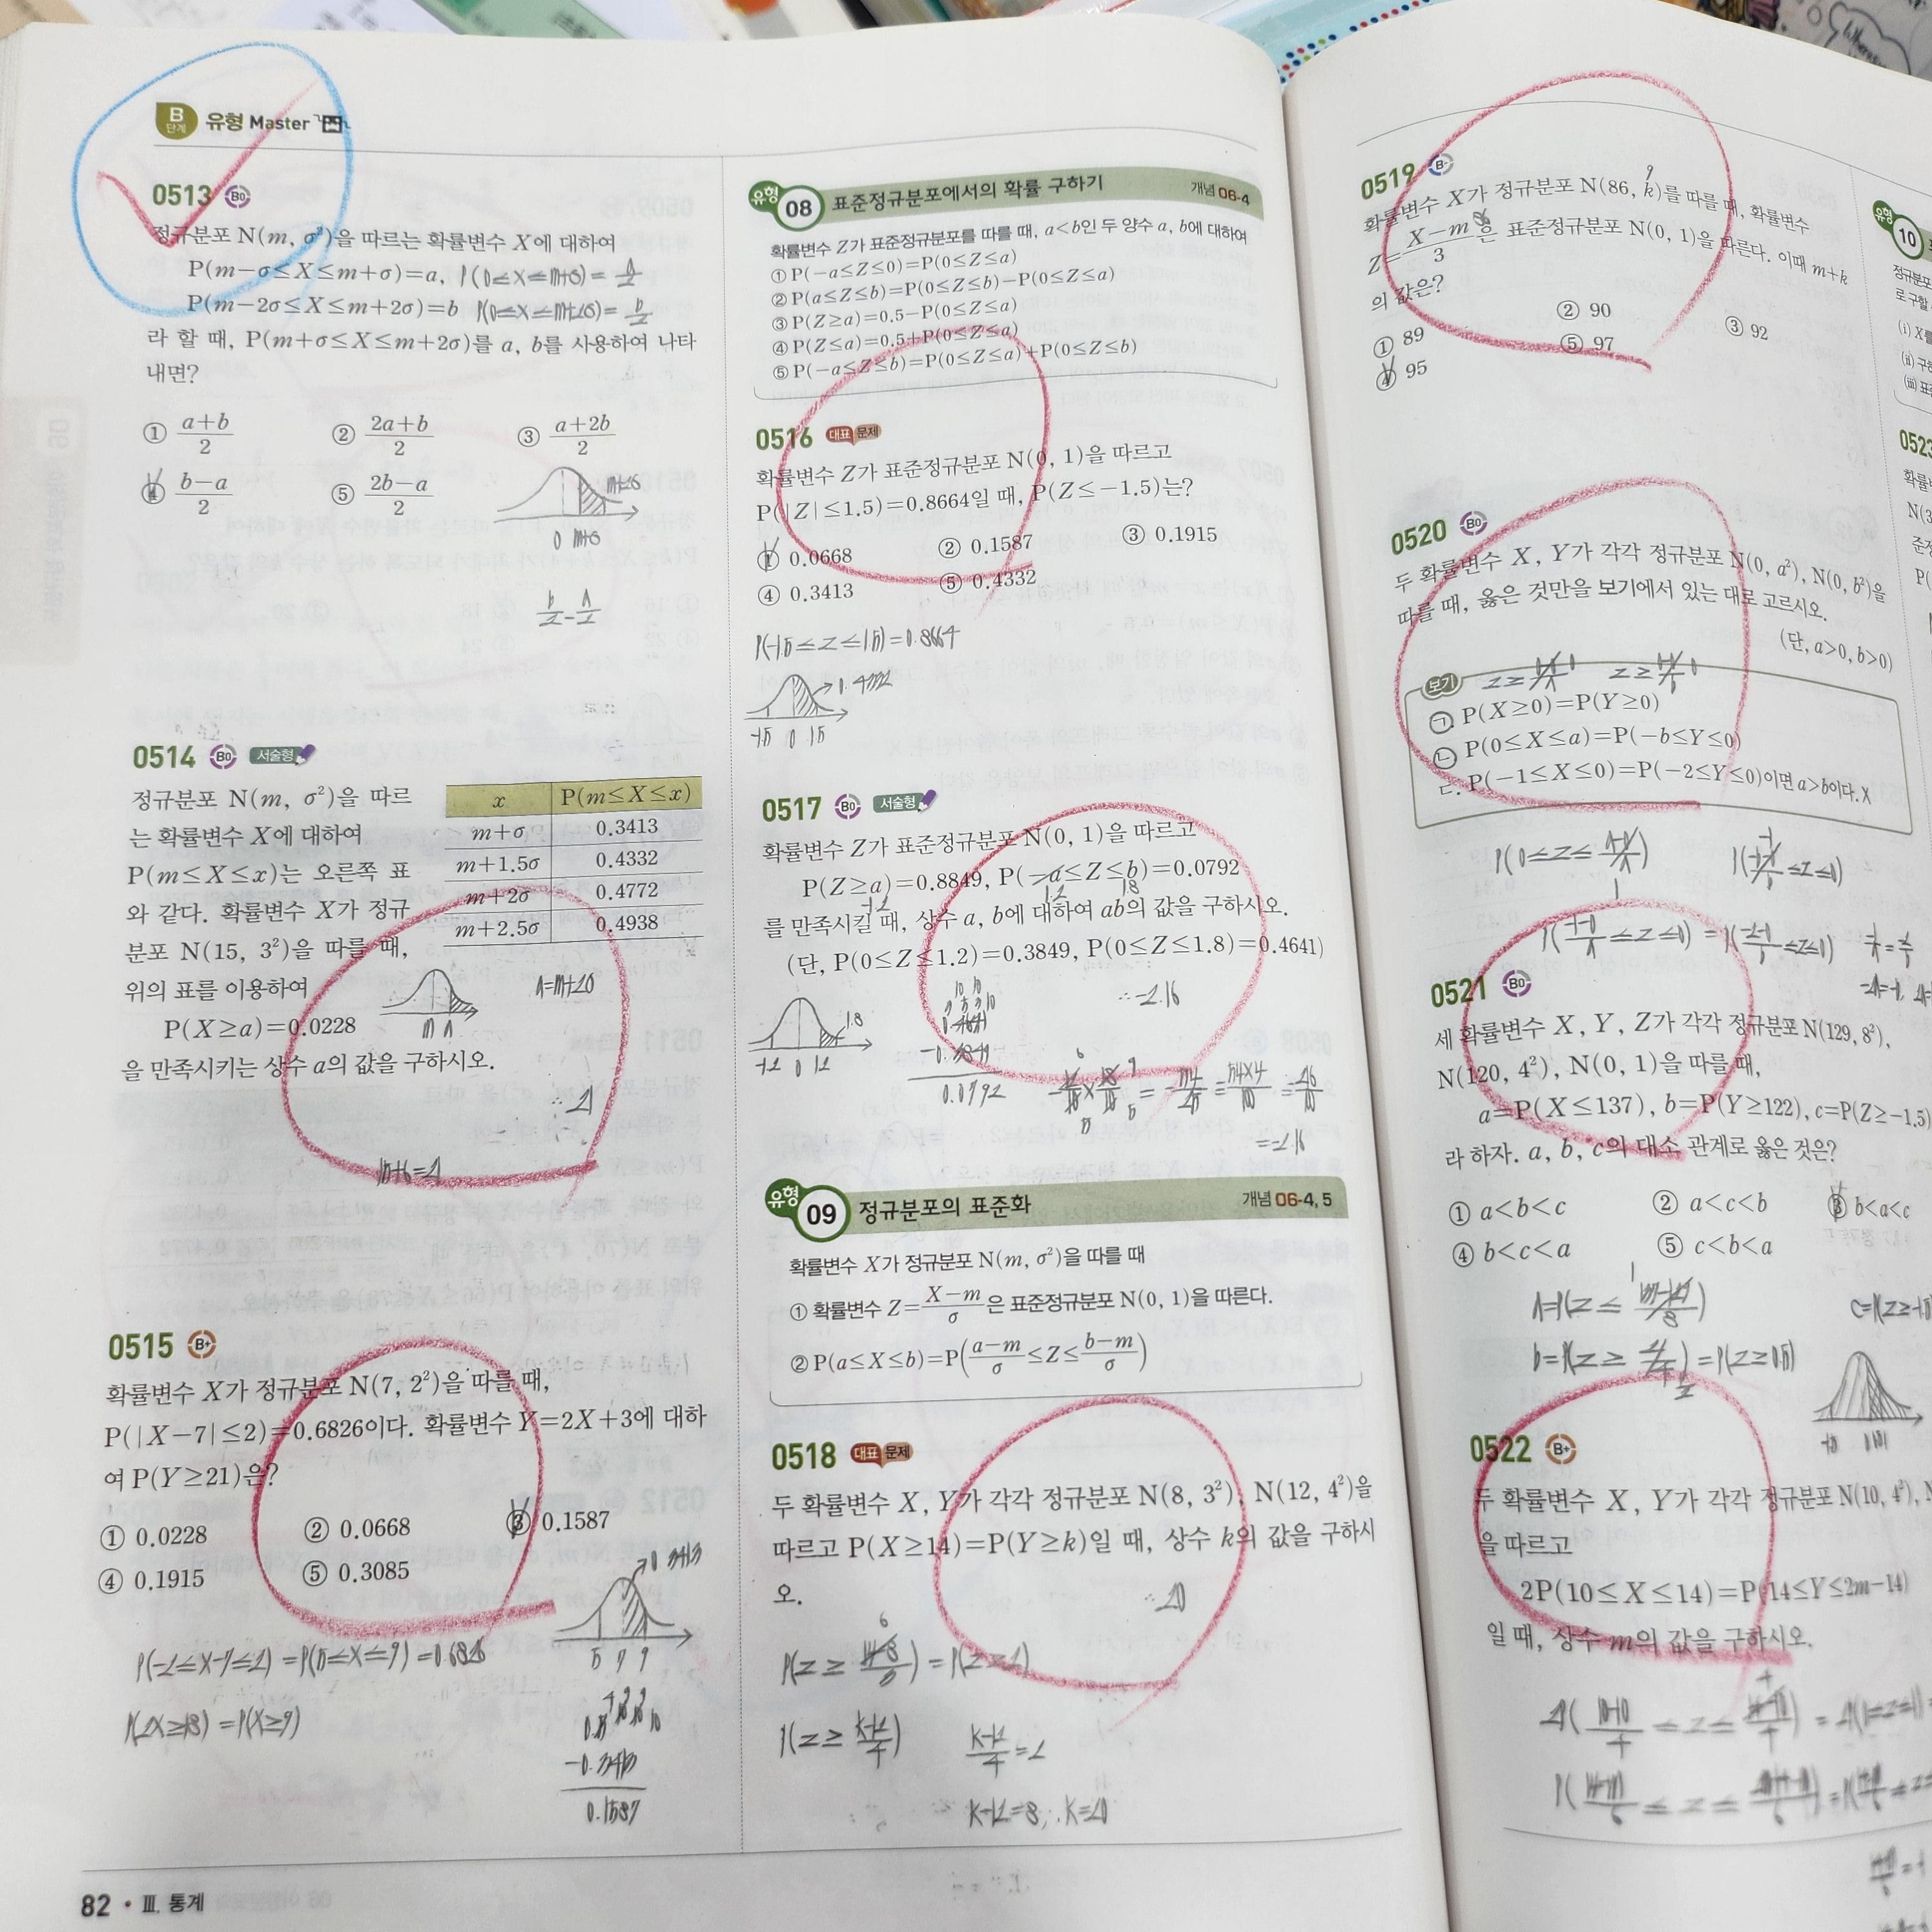 B 단계 유형 Master
0513 B0
정규분포 N(m, σ²)을 따르는 확률변수 X에 대하여
P(m−σ≤X≤m+σ)=a, P(0≤X≤m+σ)=a/2
P(m−2σ≤X≤m+2σ)=b P(0≤X≤m+2σ)=b/2
라 할 때, P(m+σ≤X≤m+2σ)를 a, b를 사용하여 나타
내면?
① (a+b)/2 ② (2a+b)/2 ③ (a+2b)/2
④ (b−a)/2 ⑤ (2b−a)/2
m+2σ
0 m+σ
b/2 − a/2
0514 B0 서술형
정규분포 N(m, σ²)을 따르
는 확률변수 X에 대하여
P(m≤X≤x)는 오른쪽 표
와 같다. 확률변수 X가 정규
분포 N(15, 3²)을 따를 때,
위의 표를 이용하여
P(X≥a)=0.0228
을 만족시키는 상수 a의 값을 구하시오.
x P(m≤X≤x)
m+σ 0.3413
m+1.5σ 0.4332
m+2σ 0.4772
m+2.5σ 0.4938
a=m+2σ
m a
∴ 21
15+6=21
0515 B+
확률변수 X가 정규분포 N(7, 2²)을 따를 때,
P(|X−7|≤2)=0.6826이다. 확률변수 Y=2X+3에 대하
여 P(Y≥21)은?
① 0.0228 ② 0.0668 ③ 0.1587
④ 0.1915 ⑤ 0.3085
0.3413
5 7 9
P(−2≤X−7≤2)=P(5≤X≤9)=0.6826
P(2X≥18)=P(X≥9)
−0.3413
0.1587
82 • Ⅲ. 통계
유형 08 표준정규분포에서의 확률 구하기 개념 06-4
확률변수 Z가 표준정규분포를 따를 때, a<b인 두 양수 a, b에 대하여
① P(−a≤Z≤0)=P(0≤Z≤a)
② P(a≤Z≤b)=P(0≤Z≤b)−P(0≤Z≤a)
③ P(Z≥a)=0.5−P(0≤Z≤a)
④ P(Z≤a)=0.5+P(0≤Z≤a)
⑤ P(−a≤Z≤b)=P(0≤Z≤a)+P(0≤Z≤b)
0516 대표 문제
확률변수 Z가 표준정규분포 N(0, 1)을 따르고
P(|Z|≤1.5)=0.8664일 때, P(Z≤−1.5)는?
① 0.0668 ② 0.1587 ③ 0.1915
④ 0.3413 ⑤ 0.4332
P(−1.5≤Z≤1.5)=0.8664
0.4332
−1.5 0 1.5
0517 B0 서술형
확률변수 Z가 표준정규분포 N(0, 1)을 따르고
P(Z≥a)=0.8849, P(−a≤Z≤b)=0.0792
−1.2 1.2 1.8
를 만족시킬 때, 상수 a, b에 대하여 ab의 값을 구하시오.
(단, P(0≤Z≤1.2)=0.3849, P(0≤Z≤1.8)=0.4641)
∴ −2.16
1.8
−1.2 0 1.2
0.4641
−0.3849
0.0792
=−2.16
유형 09 정규분포의 표준화 개념 06-4, 5
확률변수 X가 정규분포 N(m, σ²)을 따를 때
① 확률변수 Z=(X−m)/σ은 표준정규분포 N(0, 1)을 따른다.
② P(a≤X≤b)=P((a−m)/σ≤Z≤(b−m)/σ)
0518 대표 문제
두 확률변수 X, Y가 각각 정규분포 N(8, 3²), N(12, 4²)을
따르고 P(X≥14)=P(Y≥k)일 때, 상수 k의 값을 구하시
오.
∴ 20
P(Z≥(14−8)/3)=P(Z≥2)
P(Z≥(k−12)/4) (k−12)/4=2
k−12=8, ∴k=20
0519 B-
9
확률변수 X가 정규분포 N(86, k)를 따를 때, 확률변수
Z=(X−m)/3은 표준정규분포 N(0, 1)을 따른다. 이때 m+k
의 값은?
① 89 ② 90 ③ 92
④ 95 ⑤ 97
0520 B0
두 확률변수 X, Y가 각각 정규분포 N(0, a²), N(0, b²)을
따를 때, 옳은 것만을 보기에서 있는 대로 고르시오.
(단, a>0, b>0)
보기
ㄱ. P(X≥0)=P(Y≥0)
ㄴ. P(0≤X≤a)=P(−b≤Y≤0)
ㄷ. P(−1≤X≤0)=P(−2≤Y≤0)이면 a>b이다. X
0521 B0
세 확률변수 X, Y, Z가 각각 정규분포 N(129, 8²),
N(120, 4²), N(0, 1)을 따를 때,
a=P(X≤137), b=P(Y≥122), c=P(Z≥−1.5)
라 하자. a, b, c의 대소 관계로 옳은 것은?
① a<b<c ② a<c<b ③ b<a<c
④ b<c<a ⑤ c<b<a
0522 B+
두 확률변수 X, Y가 각각 정규분포 N(10, 4²),
을 따르고
2P(10≤X≤14)=P(14≤Y≤2m−14)
일 때, 상수 m의 값을 구하시오.
유형 10
정규분포
로 구할
(i) X를
(ii) 구
(iii) 표
0523
확률